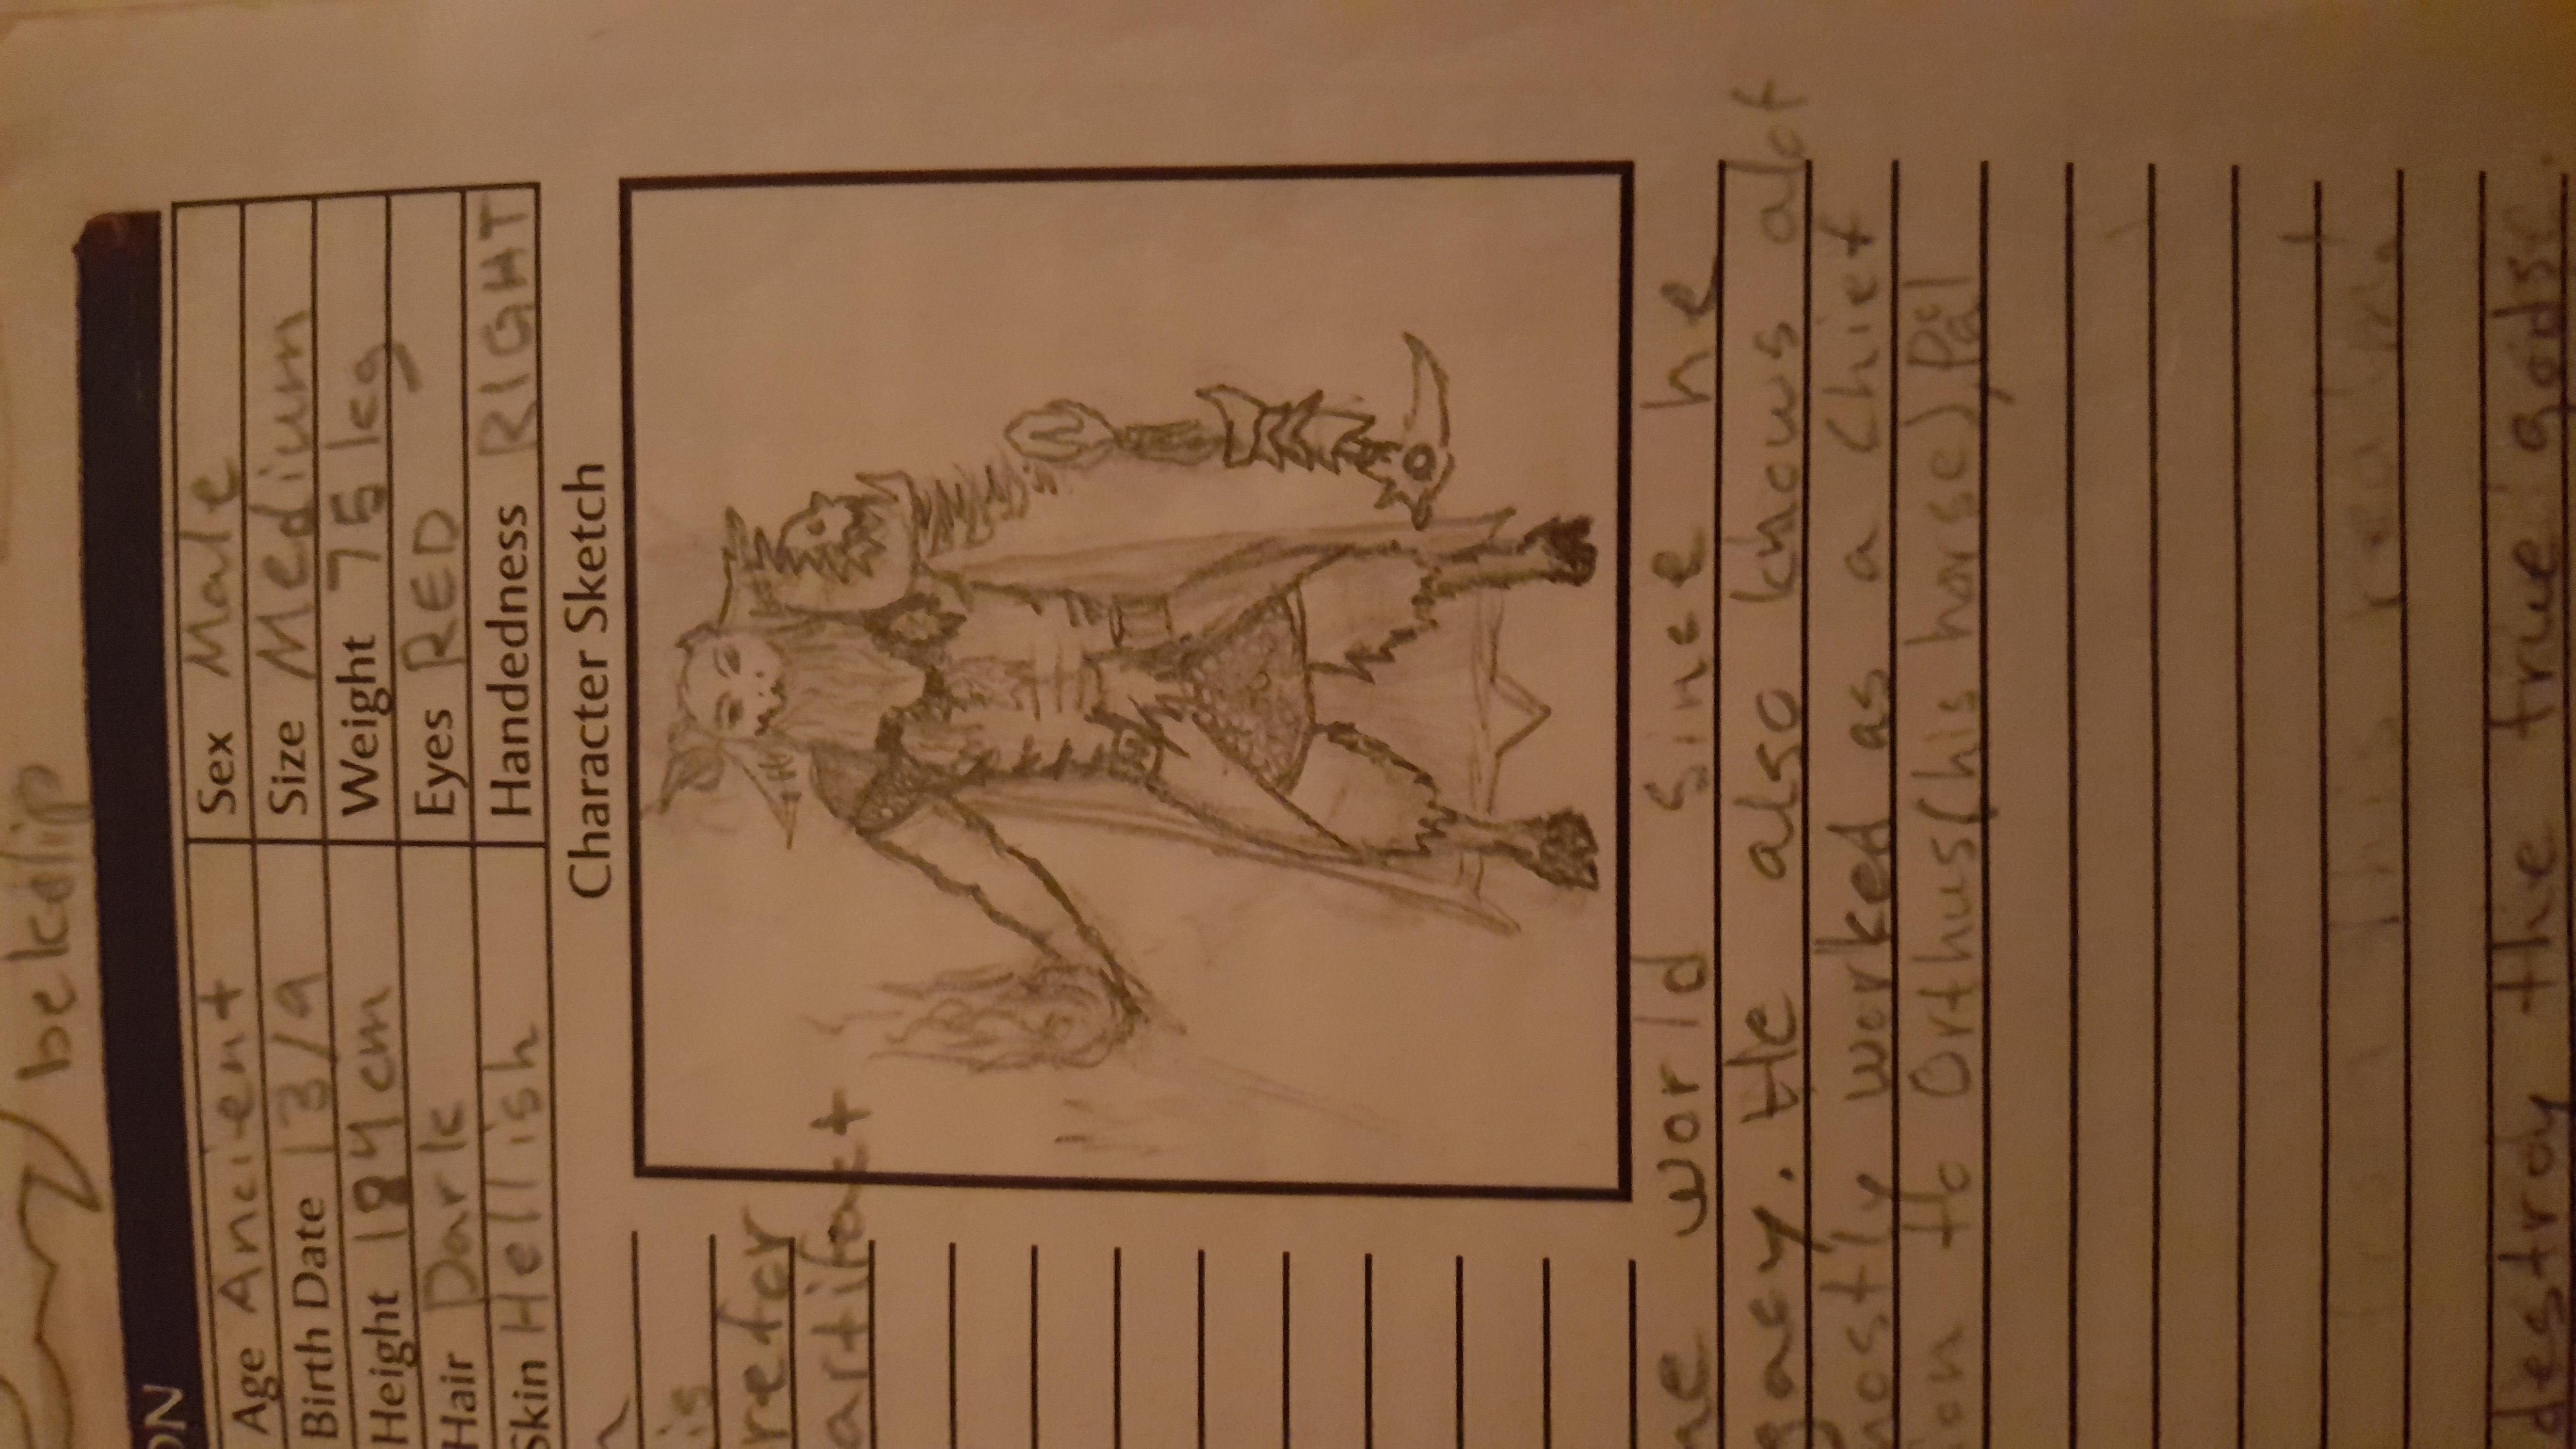 bekdlip
ON
Age Ancient Sex Male
Birth Date 13/9 Size Medium
Height 184 cm Weight 75 kg
Hair Dark Eyes RED
Skin Hellish Handedness RIGHT
Character Sketch
is
refer
artifact
he world since he
gacy. He also knows alot
mostly worked as a chief
ion to Orthus(his horse), Pål
this realm
destroy the true gods.